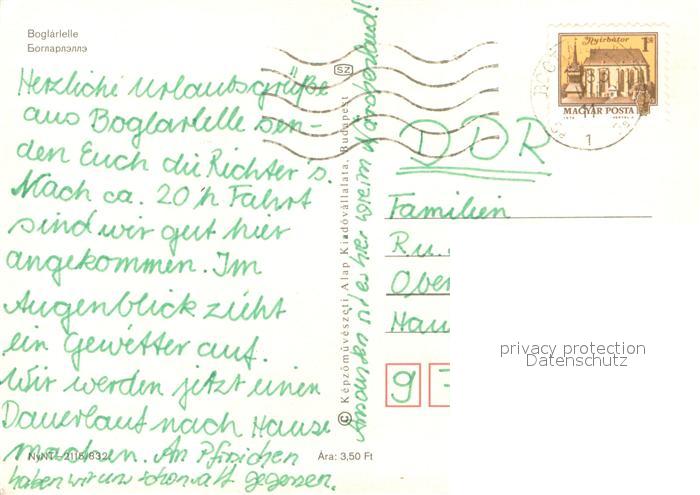 Boglárlelle
Богларлэллэ
Herzliche Urlaubsgrüße
aus Boglarlelle sen-
den Euch die Richter's.
Nach ca. 20 h Fahrt
sind wir gut hier
angekommen. Im
Augenblick zieht
ein Gewitter auf.
Wir werden jetzt einen
Dauerlauf nach Hause
machen. An Pfirsichen
haben wir uns schon satt gegessen.
NyNT—2116/832
Ára: 3,50 Ft
Ansonsten ist es hier wie im Märchenland!
© Képzőművészeti Alap Kiadóvállalata, Budapest
SZ
Nyírbátor
1 Ft
MAGYAR POSTA
1
DDR
Familien
Ru.
Ober
Hau
9
privacy protection
Datenschutz